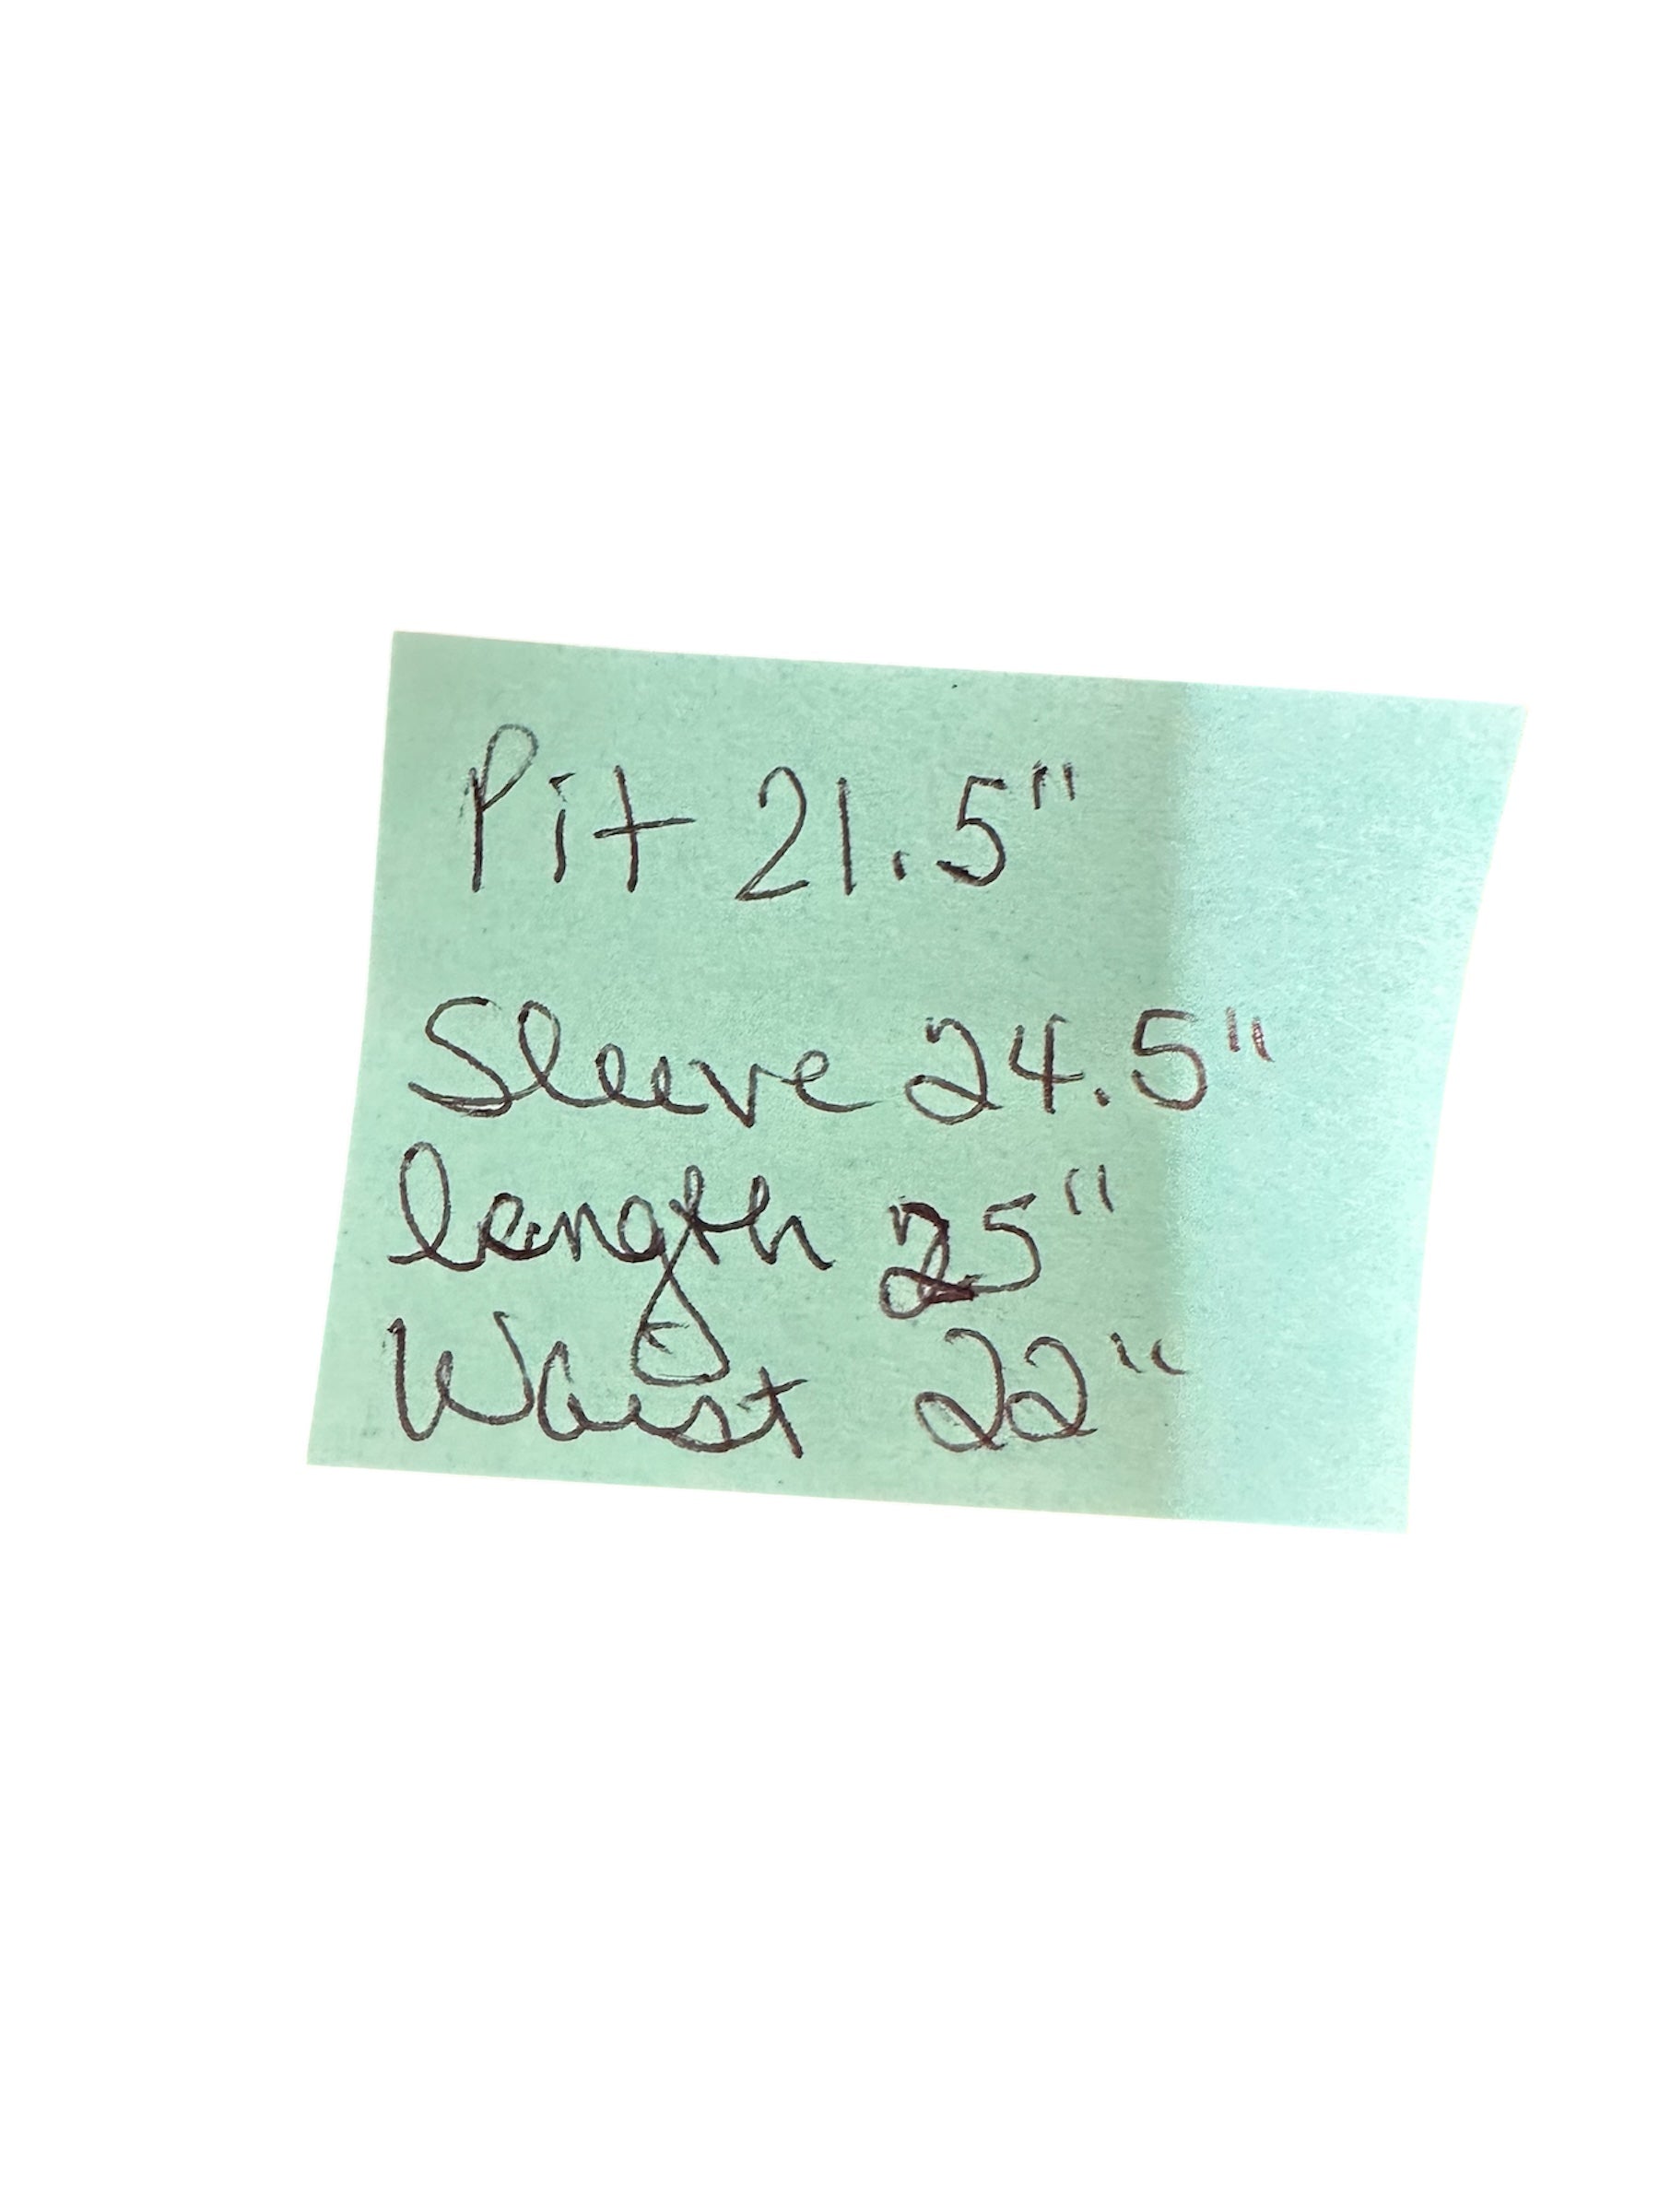 Pit 21.5"
Sleeve 24.5"
length 25"
Waist 22"